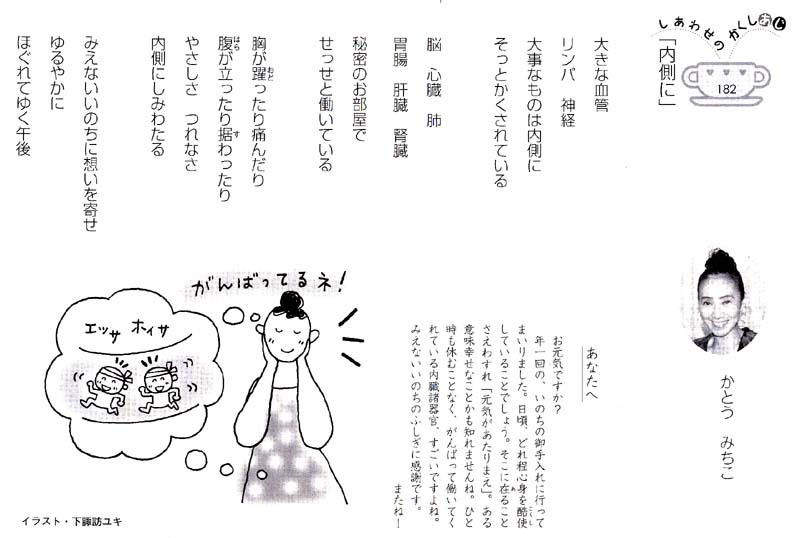 しあわせのかくしあじ
182
「内側に」
かとう みちこ
大きな血管
リンパ 神経
大事なものは内側に
そっとかくされている
脳 心臓 肺
胃腸 肝臓 腎臓
秘密のお部屋で
せっせと働いている
胸が躍ったり痛んだり
おど
腹が立ったり据わったり
はら
す
やさしさ つれなさ
内側にしみわたる
みえないいのちに想いを寄せ
ゆるやかに
ほぐれてゆく午後
あなたへ
お元気ですか?
年一回の、いのちの御手入れに行って
まいりました。日頃、どれ程心身を酷使
していることでしょう。そこに在ること
さえわすれ「元気があたりまえ」。ある
意味幸せなことかも知れませんね。ひと
時も休むことなく、がんばって働いてく
れている内臓諸器官、すごいですよね。
みえないいのちのふしぎに感謝です。
またね!
がんばってるネ!
エッサ ホイサ
イラスト・下諏訪ユキ